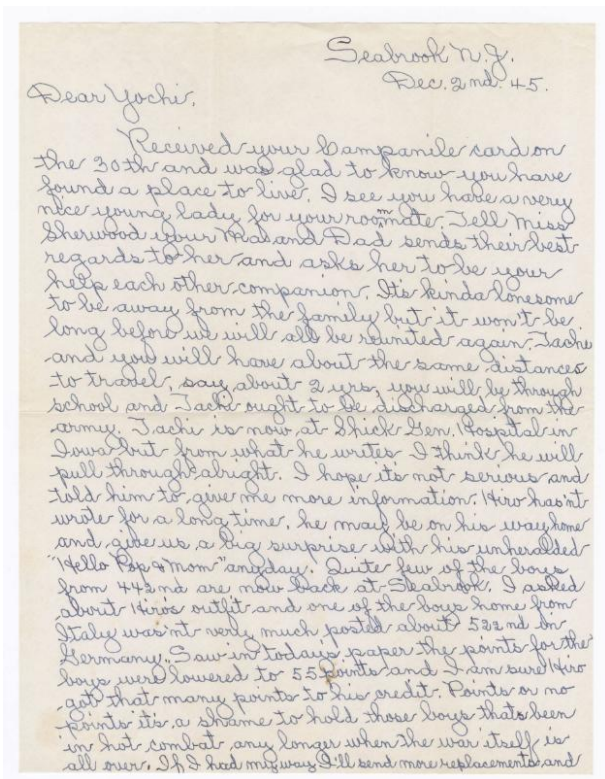 Seabrook N.J.
Dec. 2nd. 45.
Dear Yochi,
Received your Campanile card on
the 30th and was glad to know you have
found a place to live. I see you have a very
nice young lady for your roommate. Tell Miss
Sherwood your Ma and Dad sends their best
regards to her and asks her to be your
help each other companion. Its kinda lonesome
to be away from the family but it won't be
long before we will all be reunited again. Tachi
and you will have about the same distances
to travel, say about 2 yrs, you will be through
school and Tachi ought to be discharged from the
army. Tachi is now at Shick Gen. Hospital in
Iowa but from what he writes I think he will
pull through alright. I hope its not serious and
told him to give me more information. Hiro hasn't
wrote for a long time, he may be on his way home
and give us a big surprise with his unheralded
"Hello Pop & Mom" anyday. Quite few of the boys
from 442nd are now back at Seabrook. I asked
about Hiro's outfit and one of the boys home from
Italy wasn't very much posted about 522nd in
Germany. Saw in todays paper the points for the
boys were lowered to 55 points and I am sure Hiro
got that many points to his credit. Points or no
points it's a shame to hold those boys thats been
in hot combat any longer when the war itself is
all over. If I had my way I'll send more replacements and